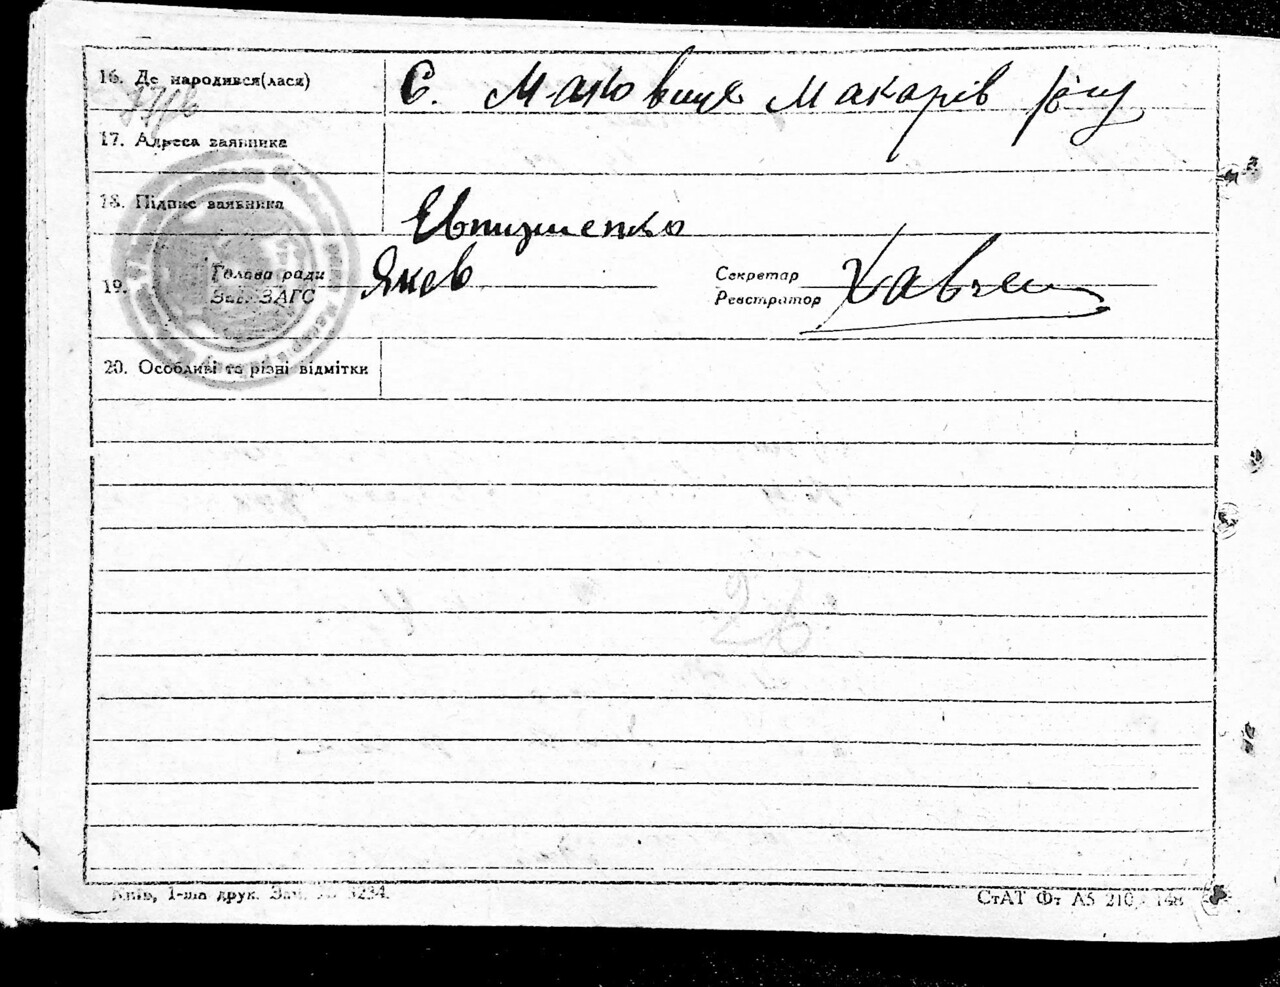 16. Де народився(лася) С. Маковище Макарів р-ну
17. Адреса заявника
18. Підпис заявника
19. Голова ради Яков Секретар
Зав. ЗАГС Реєстратор
20. Особливі та різні відмітки
26
Київ, 1-ша друк. Зам. № 3234. СтАТ Фт А5 210 148